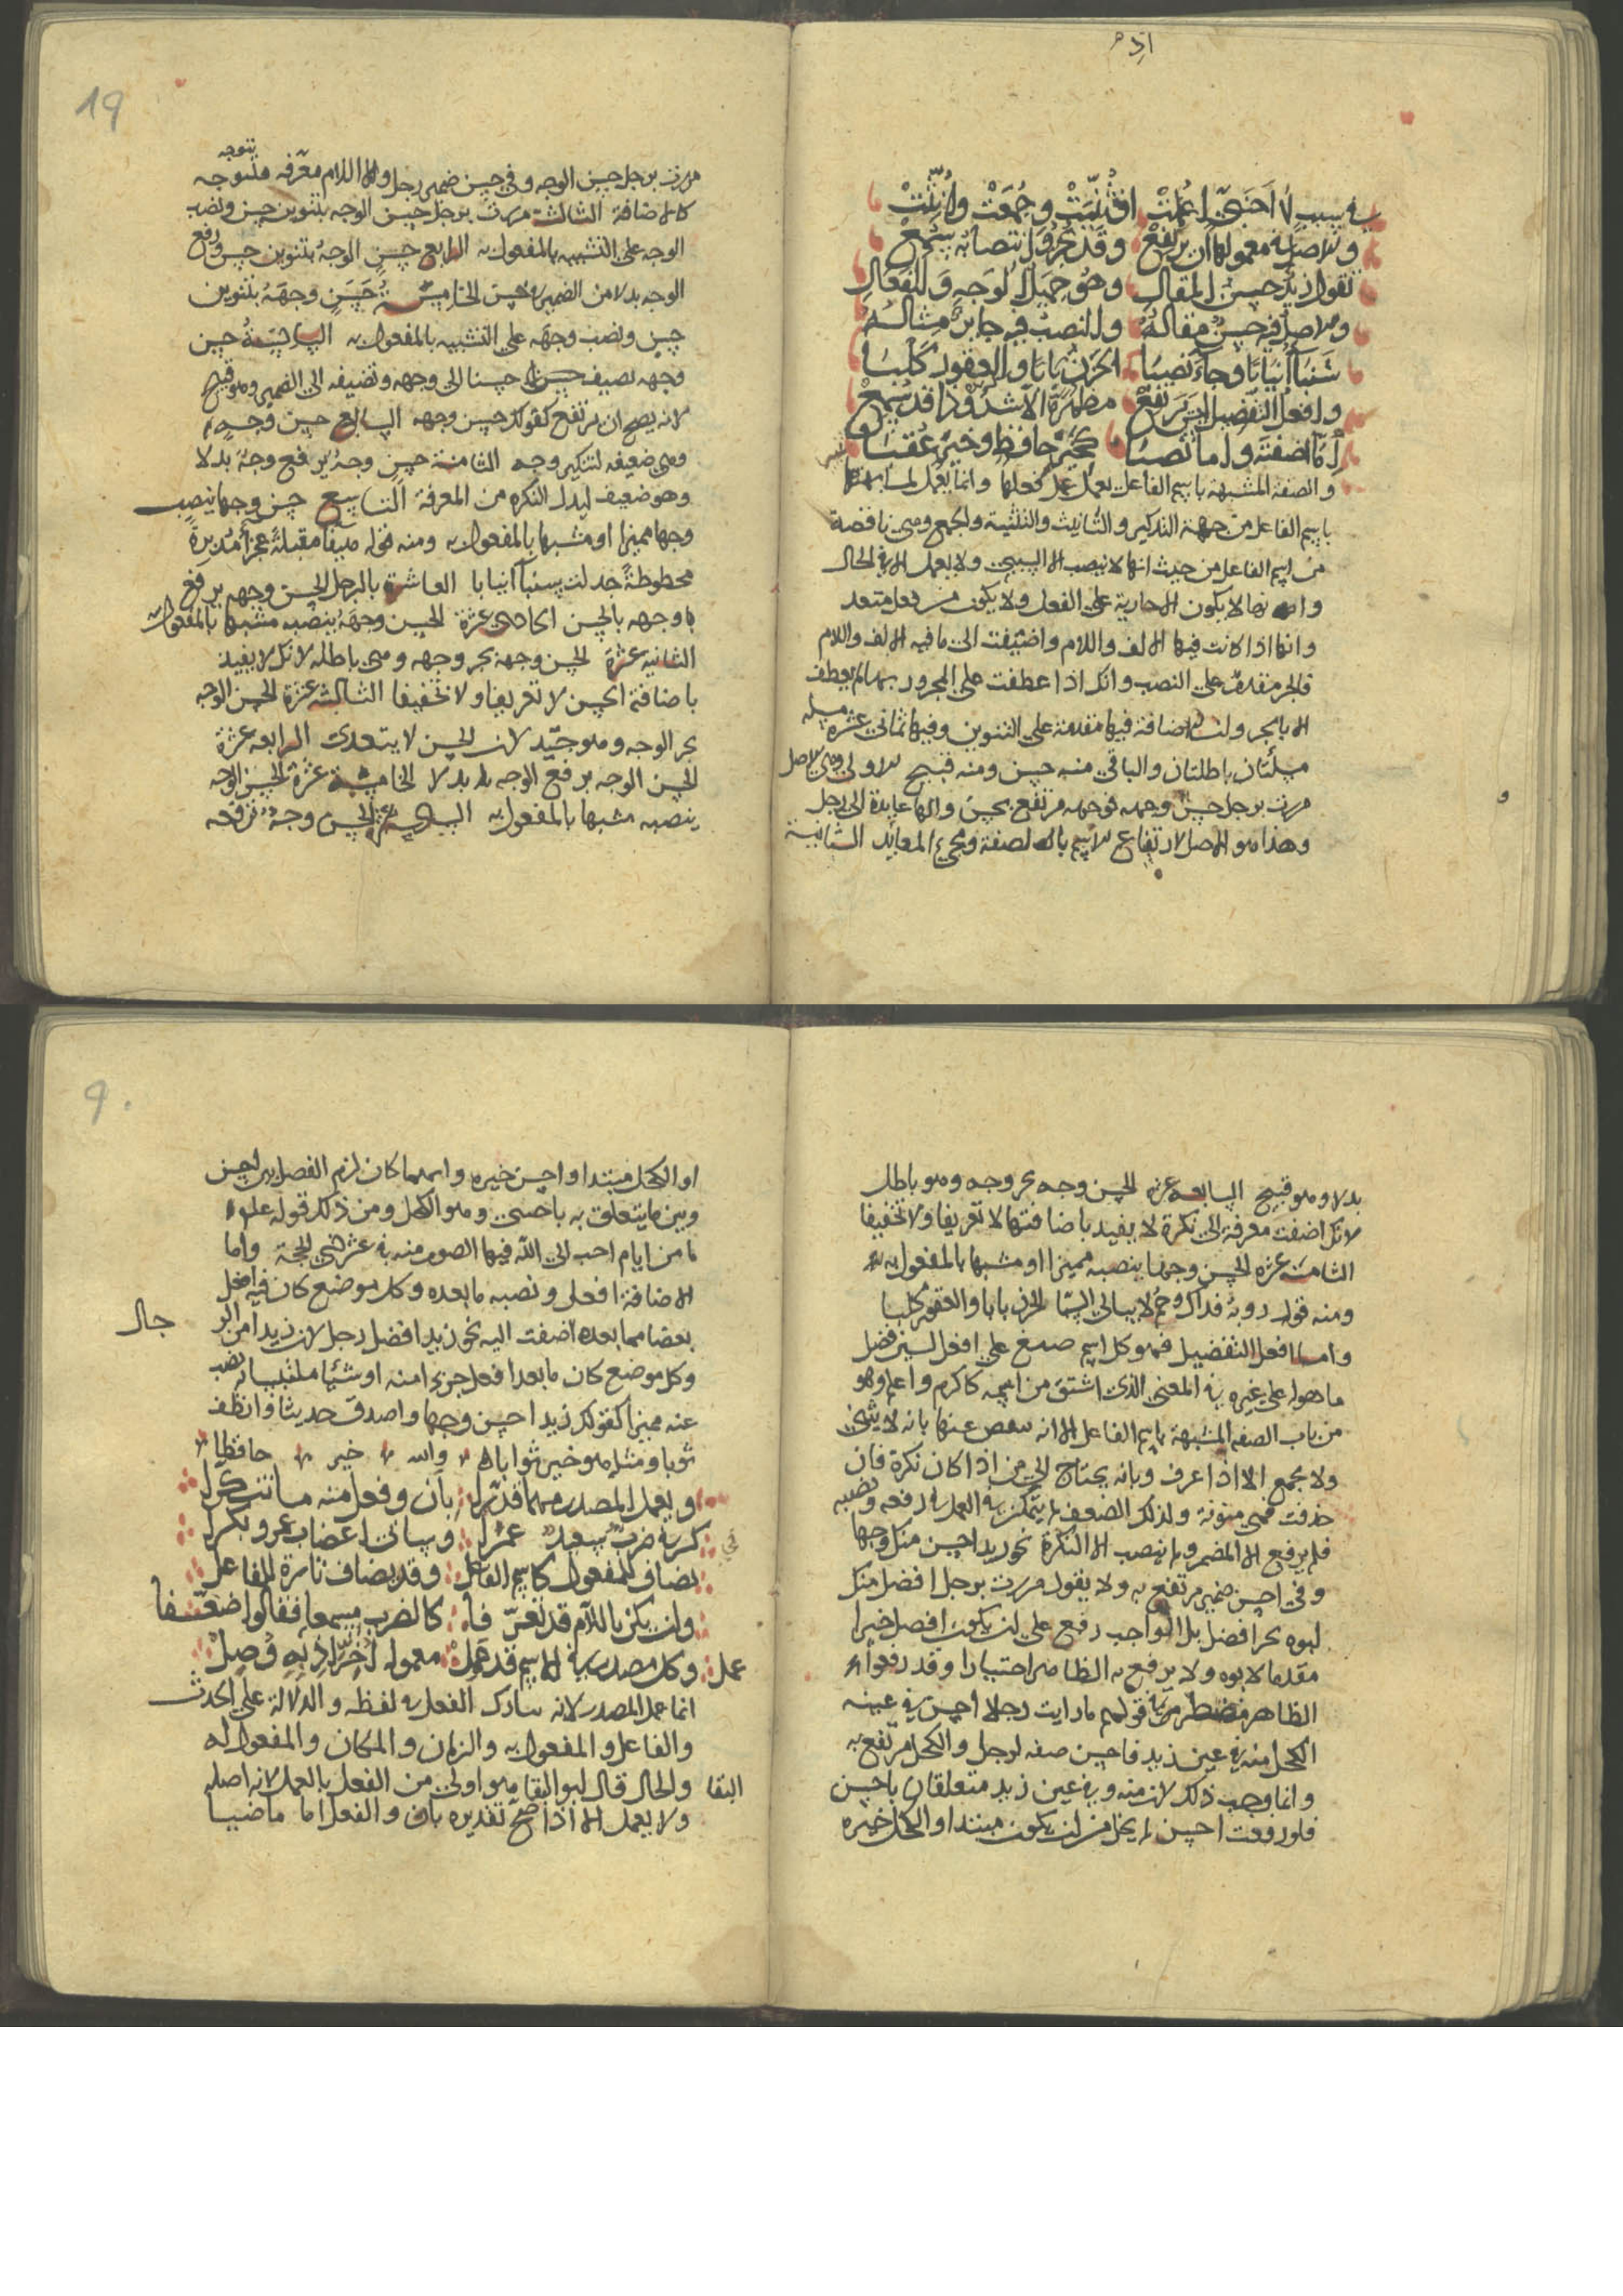 في سبب لا أجنبي اعملت اذ ثنيت وجمعت وانثت
والاصل في معمولها ان يرتفع وقد يجر وانتصابه سمع
تقول زيد حسن المقال وهو جميل الوجه والفعال
والاصل فيه حسن مقاله والنصب فيه جايز مثاله
شنبا أنيابا وجاء نصبا الحزن بابا والعقور كلبا
وافعل التفضيل لن يرتفع مظهره الا شذوذا قد سمع
أما اضفته واما نصبا كخير حافظ وخير عقبا
والصفة المشبهة باسم الفاعل يعمل عمل فعلها وانما يعمل لمشابهتها
باسم الفاعل من جهة التذكير والتأنيث والتثنية والجمع وهي ناقصة
من اسم الفاعل من حيث انها لا ينصب الا السببي ولا يعمل الا في الحال
وانها لا يكون الا جارية على الفعل ولا يكون من فعل متعد
وانها اذا كانت فيها الالف واللام واضيفت الى ما فيه الالف واللام
فالجر مقدم على النصب وانك اذا عطفت على المجرور بها لم يعطف
الا بالجر وان الاضافة فيها مقدمة على التنوين وفيها ثماني عشرة مسله
مسلتان باطلتان والباقي منه حسن ومنه قبيح الاولى وهي الاصل
مررت برجل حسن وجهه فوجهه مرتفع بحسن والها عايدة الى رجل
وهذا هو الاصل لارتفاع الاسم بالصفة ومجيء العايد الثانية
19
مررت برجل حسن الوجه وفي حسن ضمير رجل والالف واللام معرفه
كالاضافة الثالث مررت برجل حسن الوجه بتنوين حسن ونصب
الوجه على التشبيه بالمفعول به الرابع حسن الوجه بتنوين حسن ورفع
الوجه بدلا من الضمير في حسن الخامسة حسن وجهه بتنوين
حسن ونصب وجهه على التشبيه بالمفعول به السادسة حسن
وجهه تضيف حسنا الى وجهه وتضيفه الى الضمير وهو قبيح
لانه يصح ان يرتفع كقولك حسن وجهه السابع حسن وجه
وهي ضعيفه لتنكير وجه الثامنة حسن وجه يرفع وجه بدلا
وهو ضعيف لبدل النكره من المعرفة التاسع حسن وجها ينصب
وجها مميزا او مشبها بالمفعول به ومنه قوله هيفا مقبلة عجزا مدبرة
محطوطة جدلت شنبا أنيابا العاشرة بالرجل الحسن وجهه يرفع
وجهه بالحسن الحادي عشرة الحسن وجهه ينصبه مشبها بالمفعول به
الثانيه عشرة الحسن وجهه بجر وجهه وهي باطله لانك لا يفيد
باضافة الحسن لا تعريفا ولا تخفيفا الثالثه عشرة الحسن الوجه
بجر الوجه وهو جيد لان الحسن لا يتعدى الرابعه عشرة
الحسن الوجه برفع الوجه بدلا الخامسة عشرة الحسن الوجه
ينصبه مشبها بالمفعول به السادسة عشر الحسن وجه ترفعه
بدلا وهو قبيح السابعه عشره الحسن وجه بجر وجه وهو باطل
لانك اضفت معرفة الى نكرة لا يفيد باضافتها لا تعريفا ولا تخفيفا
الثامنة عشره الحسن وجها ينصبه مميزا او مشبها بالمفعول به
ومنه قول روبة فداك وخم لا يبالي السبا الحزن بابا والعقور كلبا
واما افعل التفضيل فهو كل اسم صيغ على افعل لتبين فضل
ما هو له على غيره في المعنى الذي اشتق من اسمه كاكرم واعلم وهو
من باب الصفه المشبهة باسم الفاعل الا انه ينقص عنها بانه لا يثنى
ولا يجمع الا اذا عرف وبانه يحتاج الى من اذا كان نكرة فان
حذفت فهي منوية ولذلك الضعف لم يتمكن في العمل في رفعه ونصبه
فلم يرفع الا المضمر ولم ينصب الا النكرة نحو زيد احسن منك وجها
وفي احسن ضمير مرتفع به ولا يقول مررت برجل افضل منك
ابوه بجر افضل بل الواجب رفع على ان يكون افضل خبرا
مقدما لابوه ولا يرفع به الظاهر اختيارا وقد رفعوا
الظاهر في قولهم ما رايت رجلا احسن في عينه
الكحل منه في عين زيد فاحسن صفه لرجل والكحل مرتفع به
وانما وجب ذلك لان منه وفي عين زيد متعلقان باحسن
فلو رفعت احسن لم يخل من ان يكون مبتدا والكحل خبره
او الكحل مبتدا واحسن خبره وايهما كان لزم الفصل بين احسن
وبين ما يتعلق به باجنبي وهو الكحل ومن ذلك قوله علم
ما من ايام احب الى الله فيها الصوم منه في عشر ذي الحجة واما
الاضافة افعل ونصبه ما بعده وكل موضع كان فيه افعل
بعضا مما بعده اضفت اليه نحو زيد افضل رجل لان زيدا من الر
جال
وكل موضع كان ما بعد افعل جزءا منه او شيئا ملتبسا به نصب
عنه مميزا كقولك زيد احسن وجها واصدق حديثا وانظف
ثوبا ومثله هو خير ثوابا والله خير حافظا
ويعمل المصدر مهما قدرا بأن وفعل منه ما تنكرا
كسره ضرب سعيد عمرا وساني اغضاب عمرو بكرا
يضاف للمفعول كاسم الفاعل وقد يضاف تارة للفاعل
وان يكن باللام قد تعرفا كالضرب مسمعا فقالوا ضعفا
وكل مصدر في الاسم قد عمل معموله أخر اذ به وصل
عمل
انما عمل المصدر لانه شارك الفعل في لفظه والدلالة على الحدث
والفاعل والمفعول به والزمان والمكان والمفعول له
والحال قال ابو البقا هو اولى من الفعل بالعمل لانه اصله
البقا
ولا يعمل الا اذا صح تقديره بان والفعل اما ماضيا